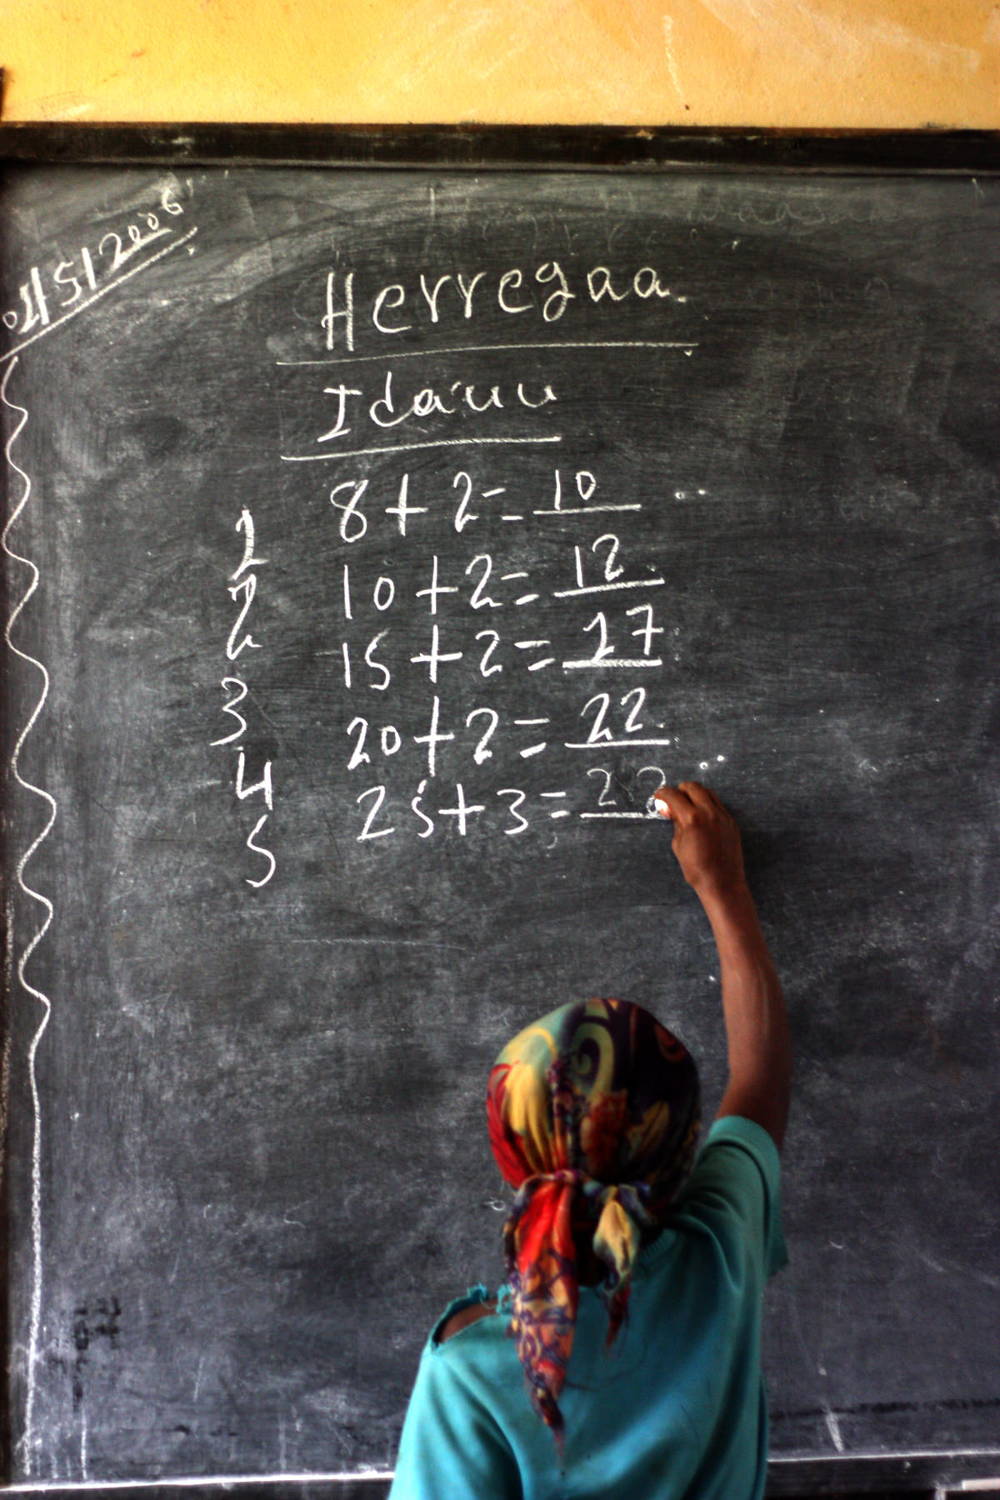 04/5/2006
Herregaa.
Ida'uu
1 8+2=10
2 10+2=12
3 15+2=17
4 20+2=22
5 25+3=28